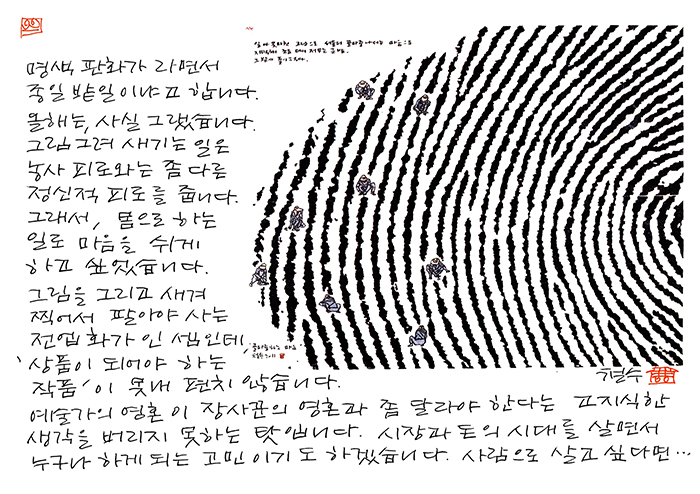 명색 판화가 라면서
종일 밭일이냐고 합니다.
올해는, 사실 그랬습니다.
그림그려 새기는 일은
농사 피로와는 좀 다른
정신적 피로를 줍니다.
그래서, 몸으로 하는
일로 마음을 쉬게
하고 싶었습니다.
그림을 그리고 새겨
찍어서 팔아야 사는
전업 화가 인 셈인데,
'상품이 되어야 하는
작품'이 못내 편치 않습니다.
예술가의 영혼이 장사꾼의 영혼과 좀 달라야 한다는 고지식한
생각을 버리지 못하는 탓입니다. 시장과 돈의 시대를 살면서
누구나 하게 되는 고민이기도 하겠습니다. 사람으로 살고 싶다면…
철수